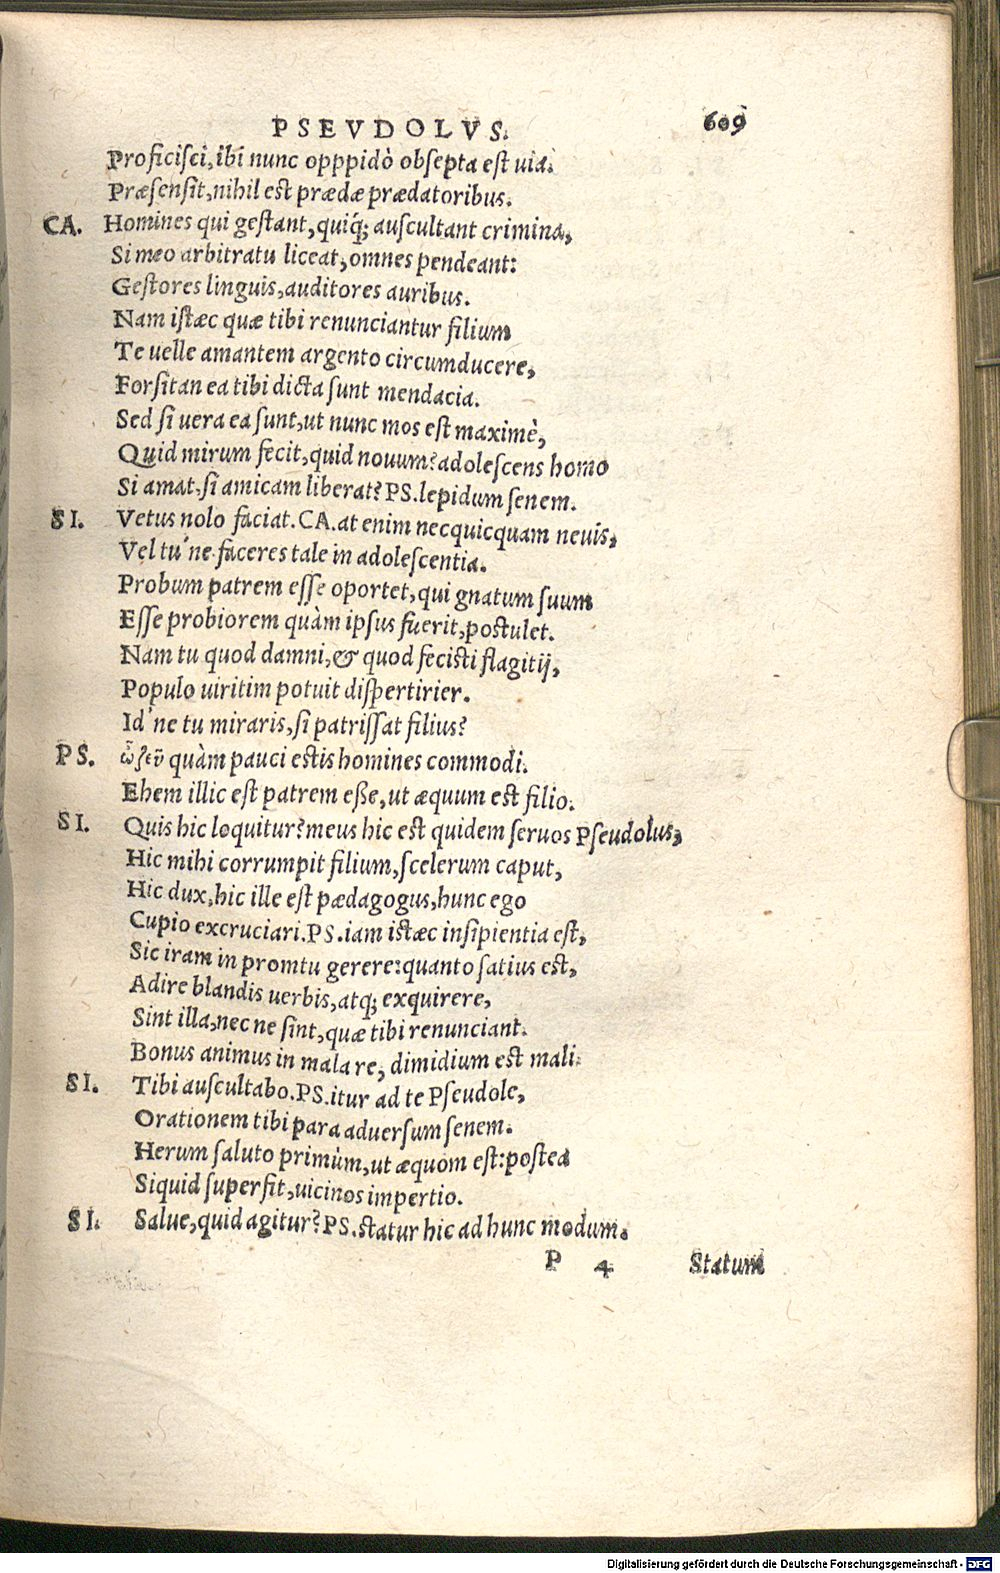 PSEVDOLVS. 609
Proficisci, ibi nunc opppidò obsepta est uia.
Præsensit, nihil est prædæ prædatoribus.
CA. Homines qui gestant, quiq́; auscultant crimina,
Si meo arbitratu liceat, omnes pendeant:
Gestores linguis, auditores auribus.
Nam istæc quæ tibi renunciantur filium
Te uelle amantem argento circumducere,
Forsitan ea tibi dicta sunt mendacia.
Sed si uera ea sunt, ut nunc mos est maximè,
Quid mirum fecit, quid nouum? adolescens homo
Si amat, si amicam liberat? PS. lepidum senem.
SI. Vetus nolo faciat. CA. at enim necquicquam neuis,
Vel tu'ne faceres tale in adolescentia.
Probum patrem esse oportet, qui gnatum suum
Esse probiorem quàm ipsus fuerit, postulet.
Nam tu quod damni, & quod fecisti flagitij,
Populo uiritim potuit dispertirier.
Id'ne tu miraris, si patrissat filius?
PS. ὦ ζεῦ quàm pauci estis homines commodi.
Ehem illic est patrem eße, ut æquum est filio.
SI. Quis hic loquitur? meus hic est quidem seruos Pseudolus,
Hic mihi corrumpit filium, scelerum caput,
Hic dux, hic ille est pædagogus, hunc ego
Cupio excruciari. PS. iam istæc insipientia est,
Sic iram in promtu gerere: quanto satius est,
Adire blandis uerbis, atq; exquirere,
Sint illa, nec ne sint, quæ tibi renunciant.
Bonus animus in mala re, dimidium est mali.
SI. Tibi auscultabo. PS. itur ad te Pseudole,
Orationem tibi para aduersum senem.
Herum saluto primùm, ut æquom est: postea
Siquid superfit, uicinos impertio.
SI. Salue, quid agitur? PS. statur hic ad hunc modum.
P 4 Statum
Digitalisierung gefördert durch die Deutsche Forschungsgemeinschaft - DFG